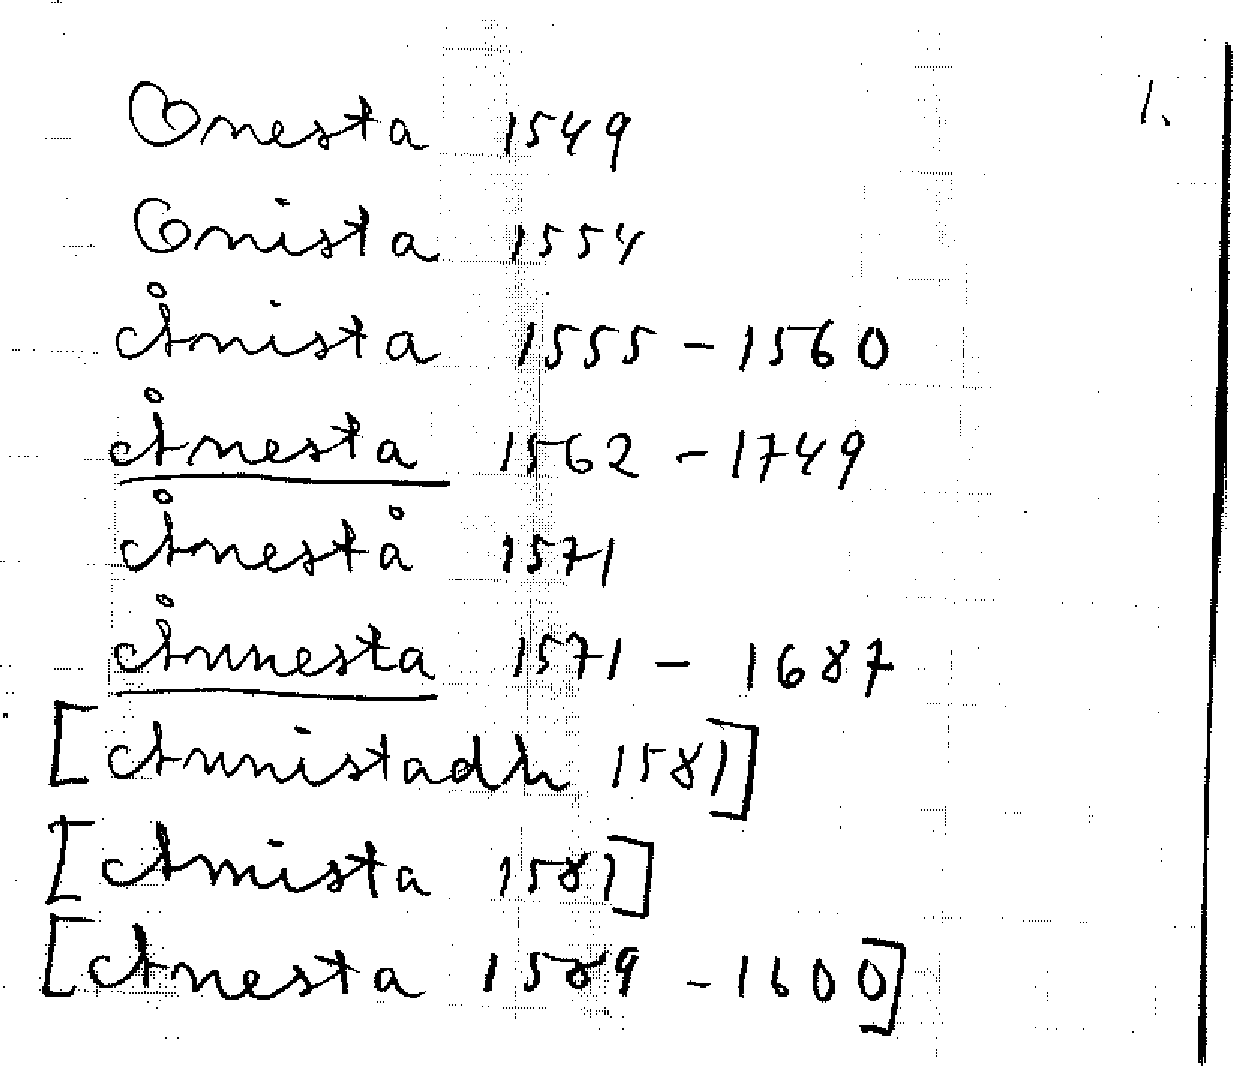 Onesta 1549
1.
Onista 1554
Ånista 1555 - 1560
Ånesta 1562 - 1749
Ånestå 1571
Ånnesta 1571 - 1687
[Annistadh 1581]
[Anista 1581]
[Anesta 1589 - 1600]